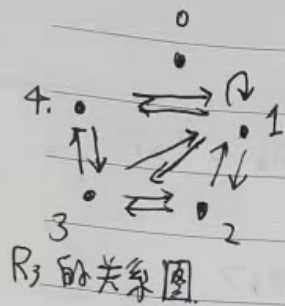 0
4.
1
3
2
R₃的关系图